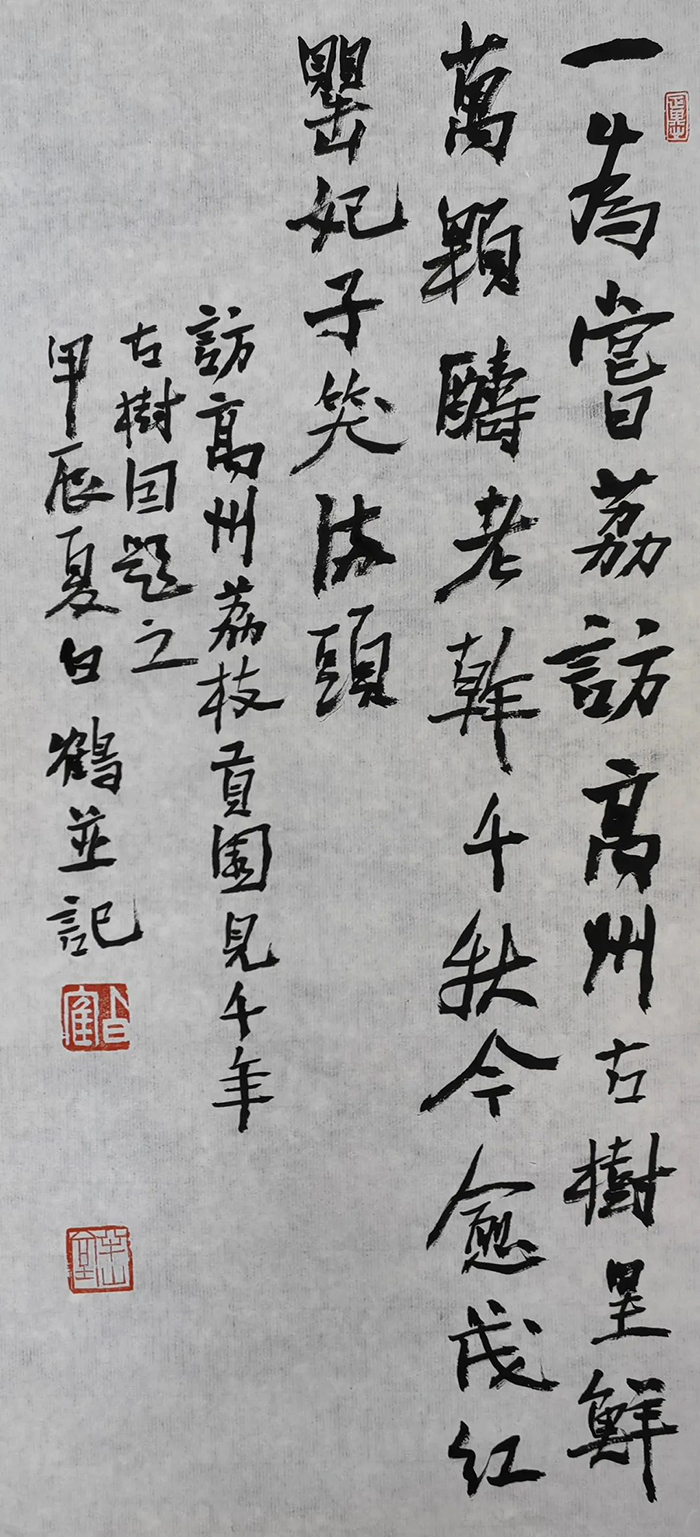 一為嘗荔訪高州古樹呈鮮
萬顆醻老幹千秋今愈茂红
罌妃子笑頭
訪高州荔枝貢園見千年
古樹因題之
甲辰夏白鶴並記